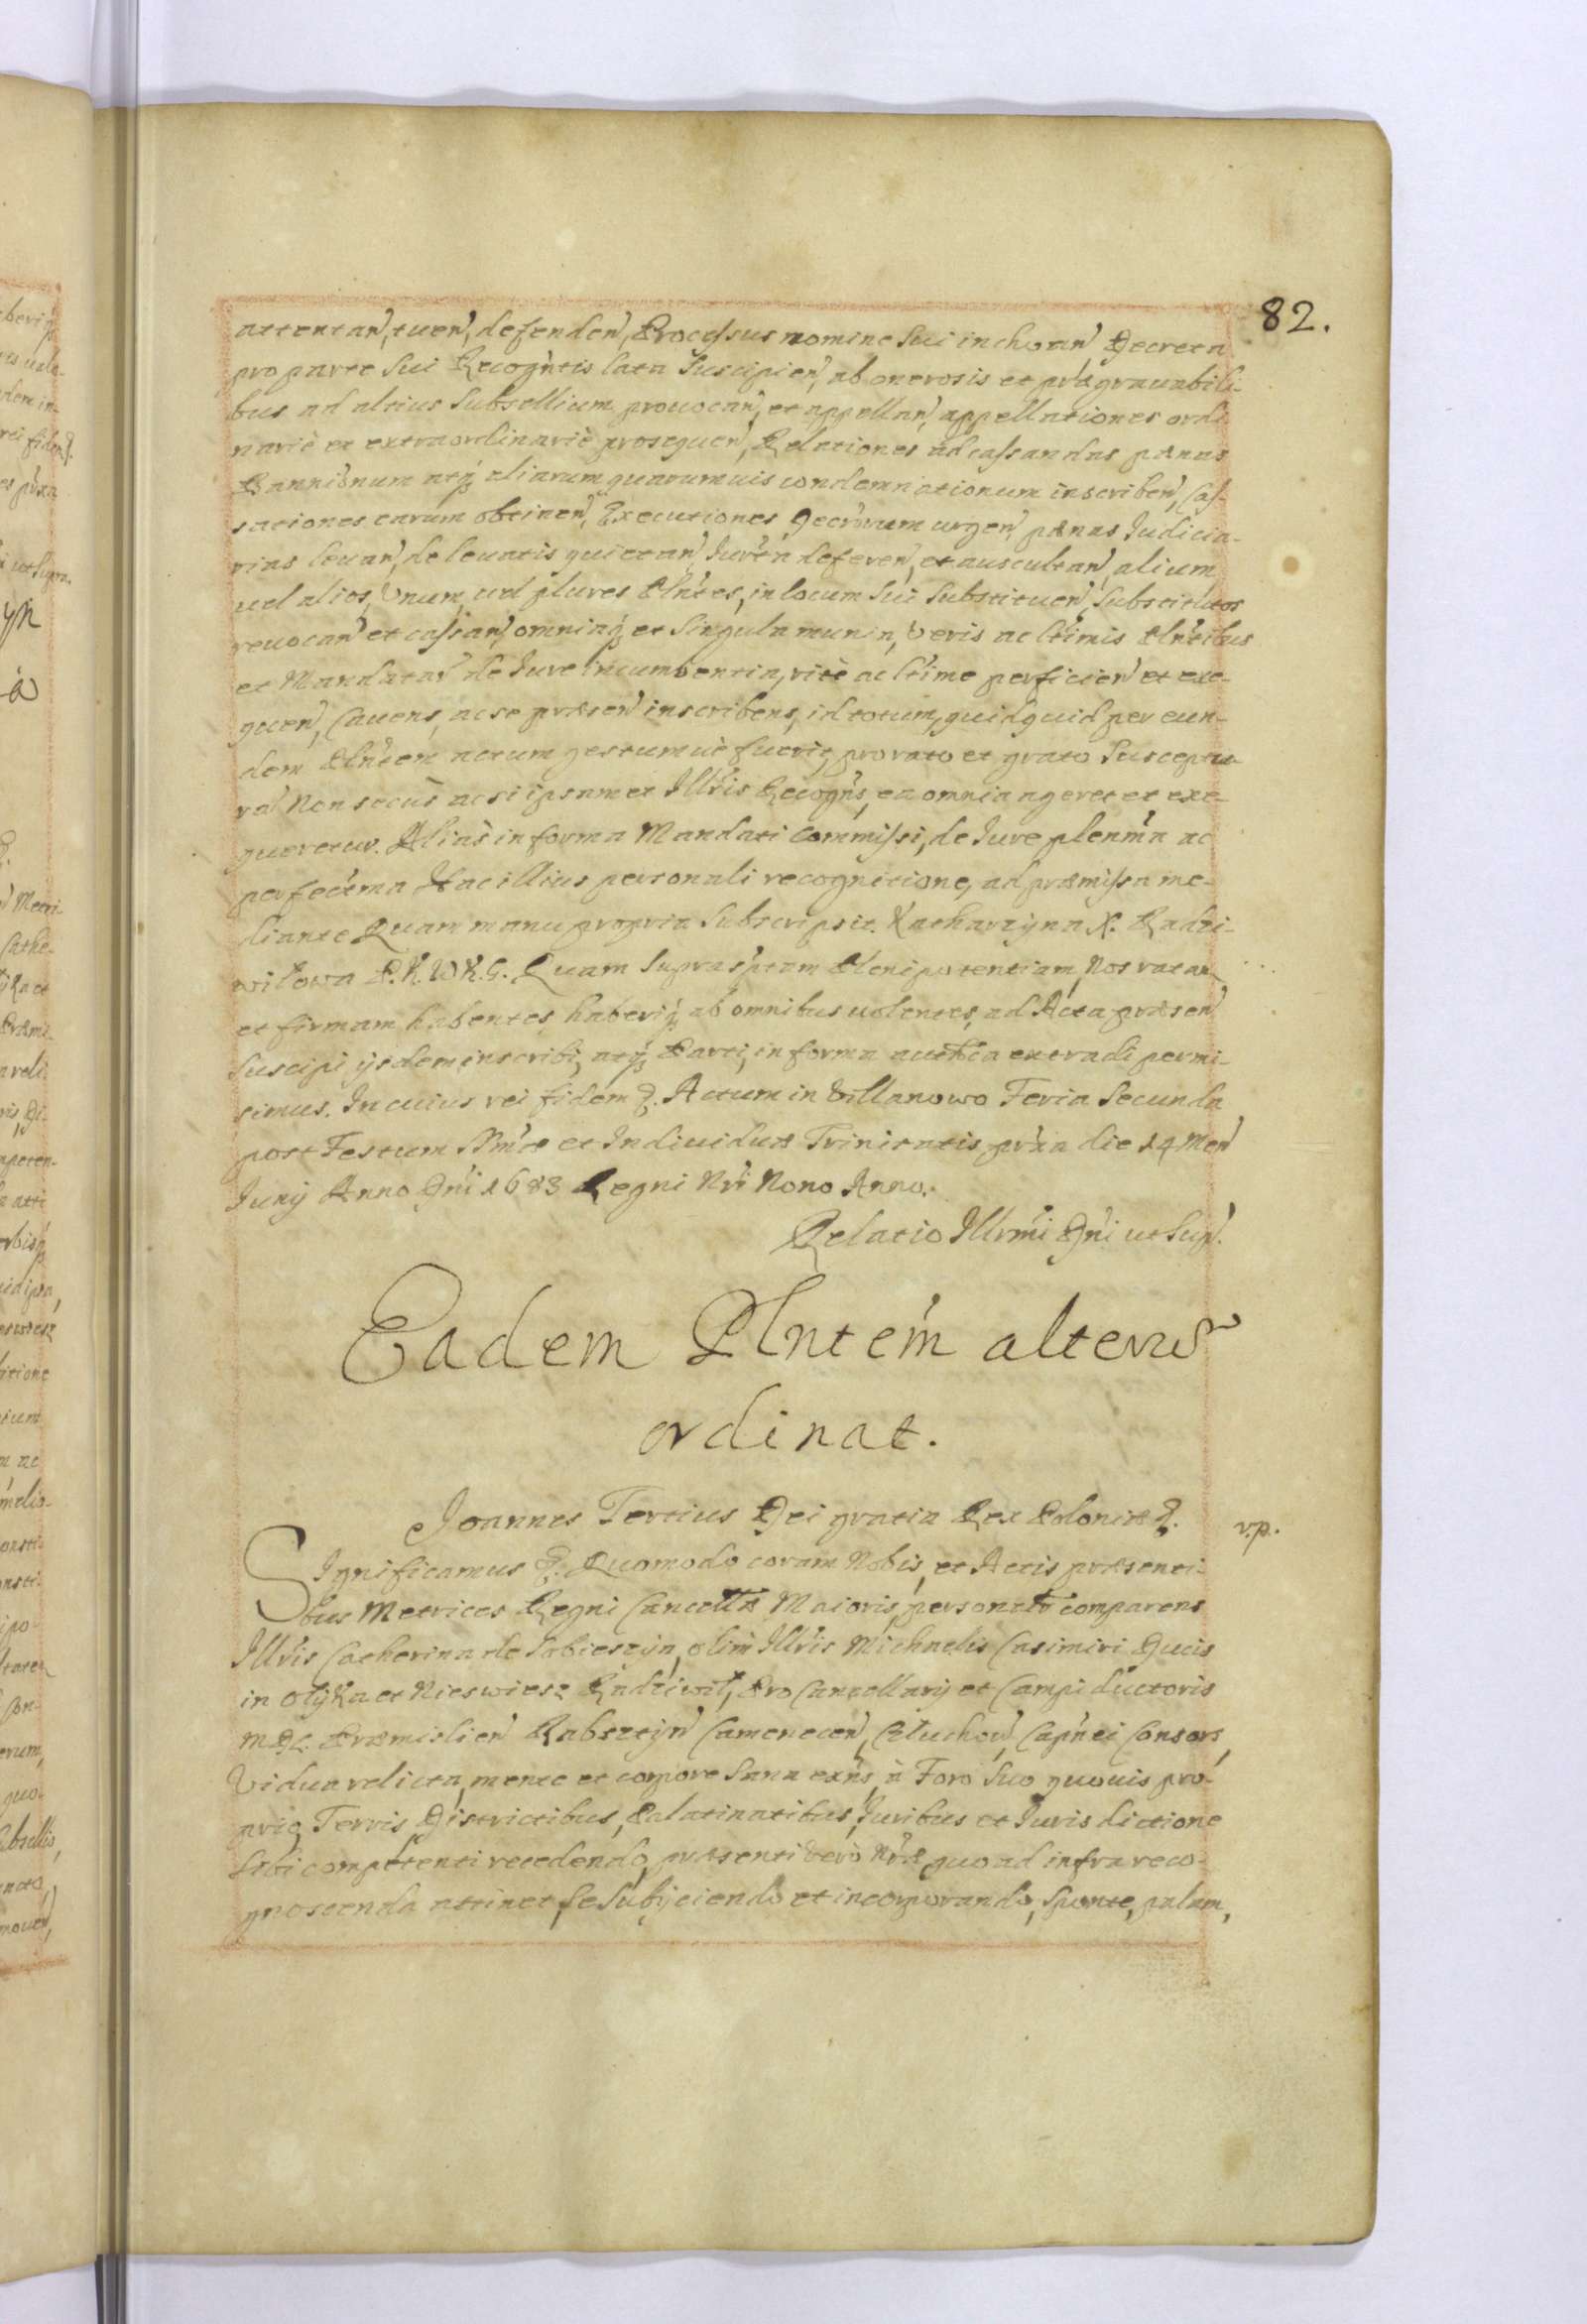 82.
attentan, tuen, defenden, Processus nomine Sui inchoan, Decreta
pro parte Sui Recogntis lata Suscipien, ab onerosis et prægrauabili-
bus ad altius Subsellium prouocan, et appellan, appellationes ordi-
nariè et extraordinariè prosequen, Relationes ad cassandas pœnas
Bannionum atq aliarum quarumuis condemnationum inscriben, Cas-
sationes earum obtinen, Executiones Decrorum urgen, pœnas Judicia-
rias leuan, de leuatis quietan, Jurta deferen, et auscultan, alium
uel alios, Unum, uel plures Plntes, in locum Sui Substituen, Substitutos
reuocan et cassan, omniaq et Singula munia, Veris ac ltimis Plntibus
et Mandatar de Jure incumbentia, ritè ac ltime perficien et exe-
quen, Cauens, ac se præsen inscribens, id totum, quidquid per eun-
dem Plntem actum gestumuè fuerit, pro rato et grato Susceptu-
ra Non secus ac si ipsamet Illris Recogns, ea omnia ageret et exe-
queretur. Alias in forma Mandati Commissi, de Jure plenma ac
perfectma Hac illius personali recognitione, ad præmissa me-
diante Quam manu propria Subscripsit. Katharzyna X. Radzi-
wiłowa P. K. W X. L. Quam Suprasptam Plenipotentiam, Nos ratam
et firmam habentes, haberiq ab omnibus uolentes, ad Acta præsen
Suscipi ijsdem inscribi, atq Parti, in forma autthca extradi permi-
simus. In cuius rei fidem &. Actum in Villanowo Feria Secunda
post Festum SSmæ et Indiuiduæ Trinitatis pria die 14 Men
Junij Anno Dni 1683 Regni Nri Nono Anno.
Relatio Illrmi Dni ut Sup.
Eadem Plntem alterũ
ordinat.
Joannes Tertius Dei gratia Rex Poloniæ &.
v.p.
Significamus &. Quomodo coram Nobis, et Actis præsenti-
bus Metrices Regni Cancellæ Maioris, personaltr comparens
Illris Catherina de Sobieszyn, olim Illris Michaelis Casimiri Ducis
in Ołyka et Nieswiesz Radziwił, Pro Cancellarij et Campi ductoris
M D L. Præmislien Rabsztyn Camenecen, Człuchow, Capnei Consors,
Vidua relicta, mente et corpore Sana exns, à Foro Suo quouis pro-
prio, Terris Districtibus, Palatinatibus, Juribus et Jurisdictione
Sibi competenti recedendo, præsenti verò Nræ quo ad infra reco-
gnoscenda attinet, se Subijciendo et incorporando, Sponte, palam,